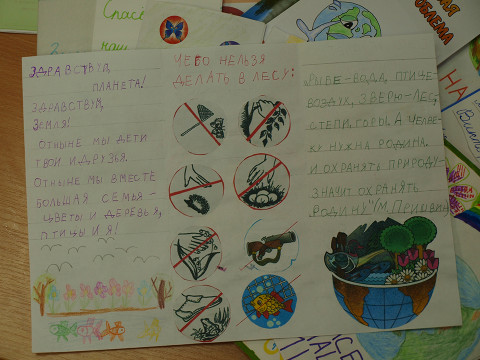 Спасё
наш
ЗДРАВСТВУЙ,
ПЛАНЕТА!
ЗДРАВСТВУЙ,
ЗЕМЛЯ!
ОТНЫНЕ МЫ ДЕТИ
ТВОИ И ДРУЗЬЯ.
ОТНЫНЕ МЫ ВМЕСТЕ
БОЛЬШАЯ СЕМЬЯ –
ЦВЕТЫ И ДЕРЕВЬЯ,
ПТИЦЫ И Я!
ЧЕГО НЕЛЬЗЯ
ДЕЛАТЬ В ЛЕСУ:
РЫБЕ-ВОДА, ПТИЦЕ-
ВОЗДУХ, ЗВЕРЮ-ЛЕС,
СТЕПИ, ГОРЫ. А ЧЕЛОВЕ-
КУ НУЖНА РОДИНА.
И ОХРАНЯТЬ ПРИРОДУ-
ЗНАЧИТ ОХРАНЯТЬ
РОДИНУ" (М. ПРИШВИН)